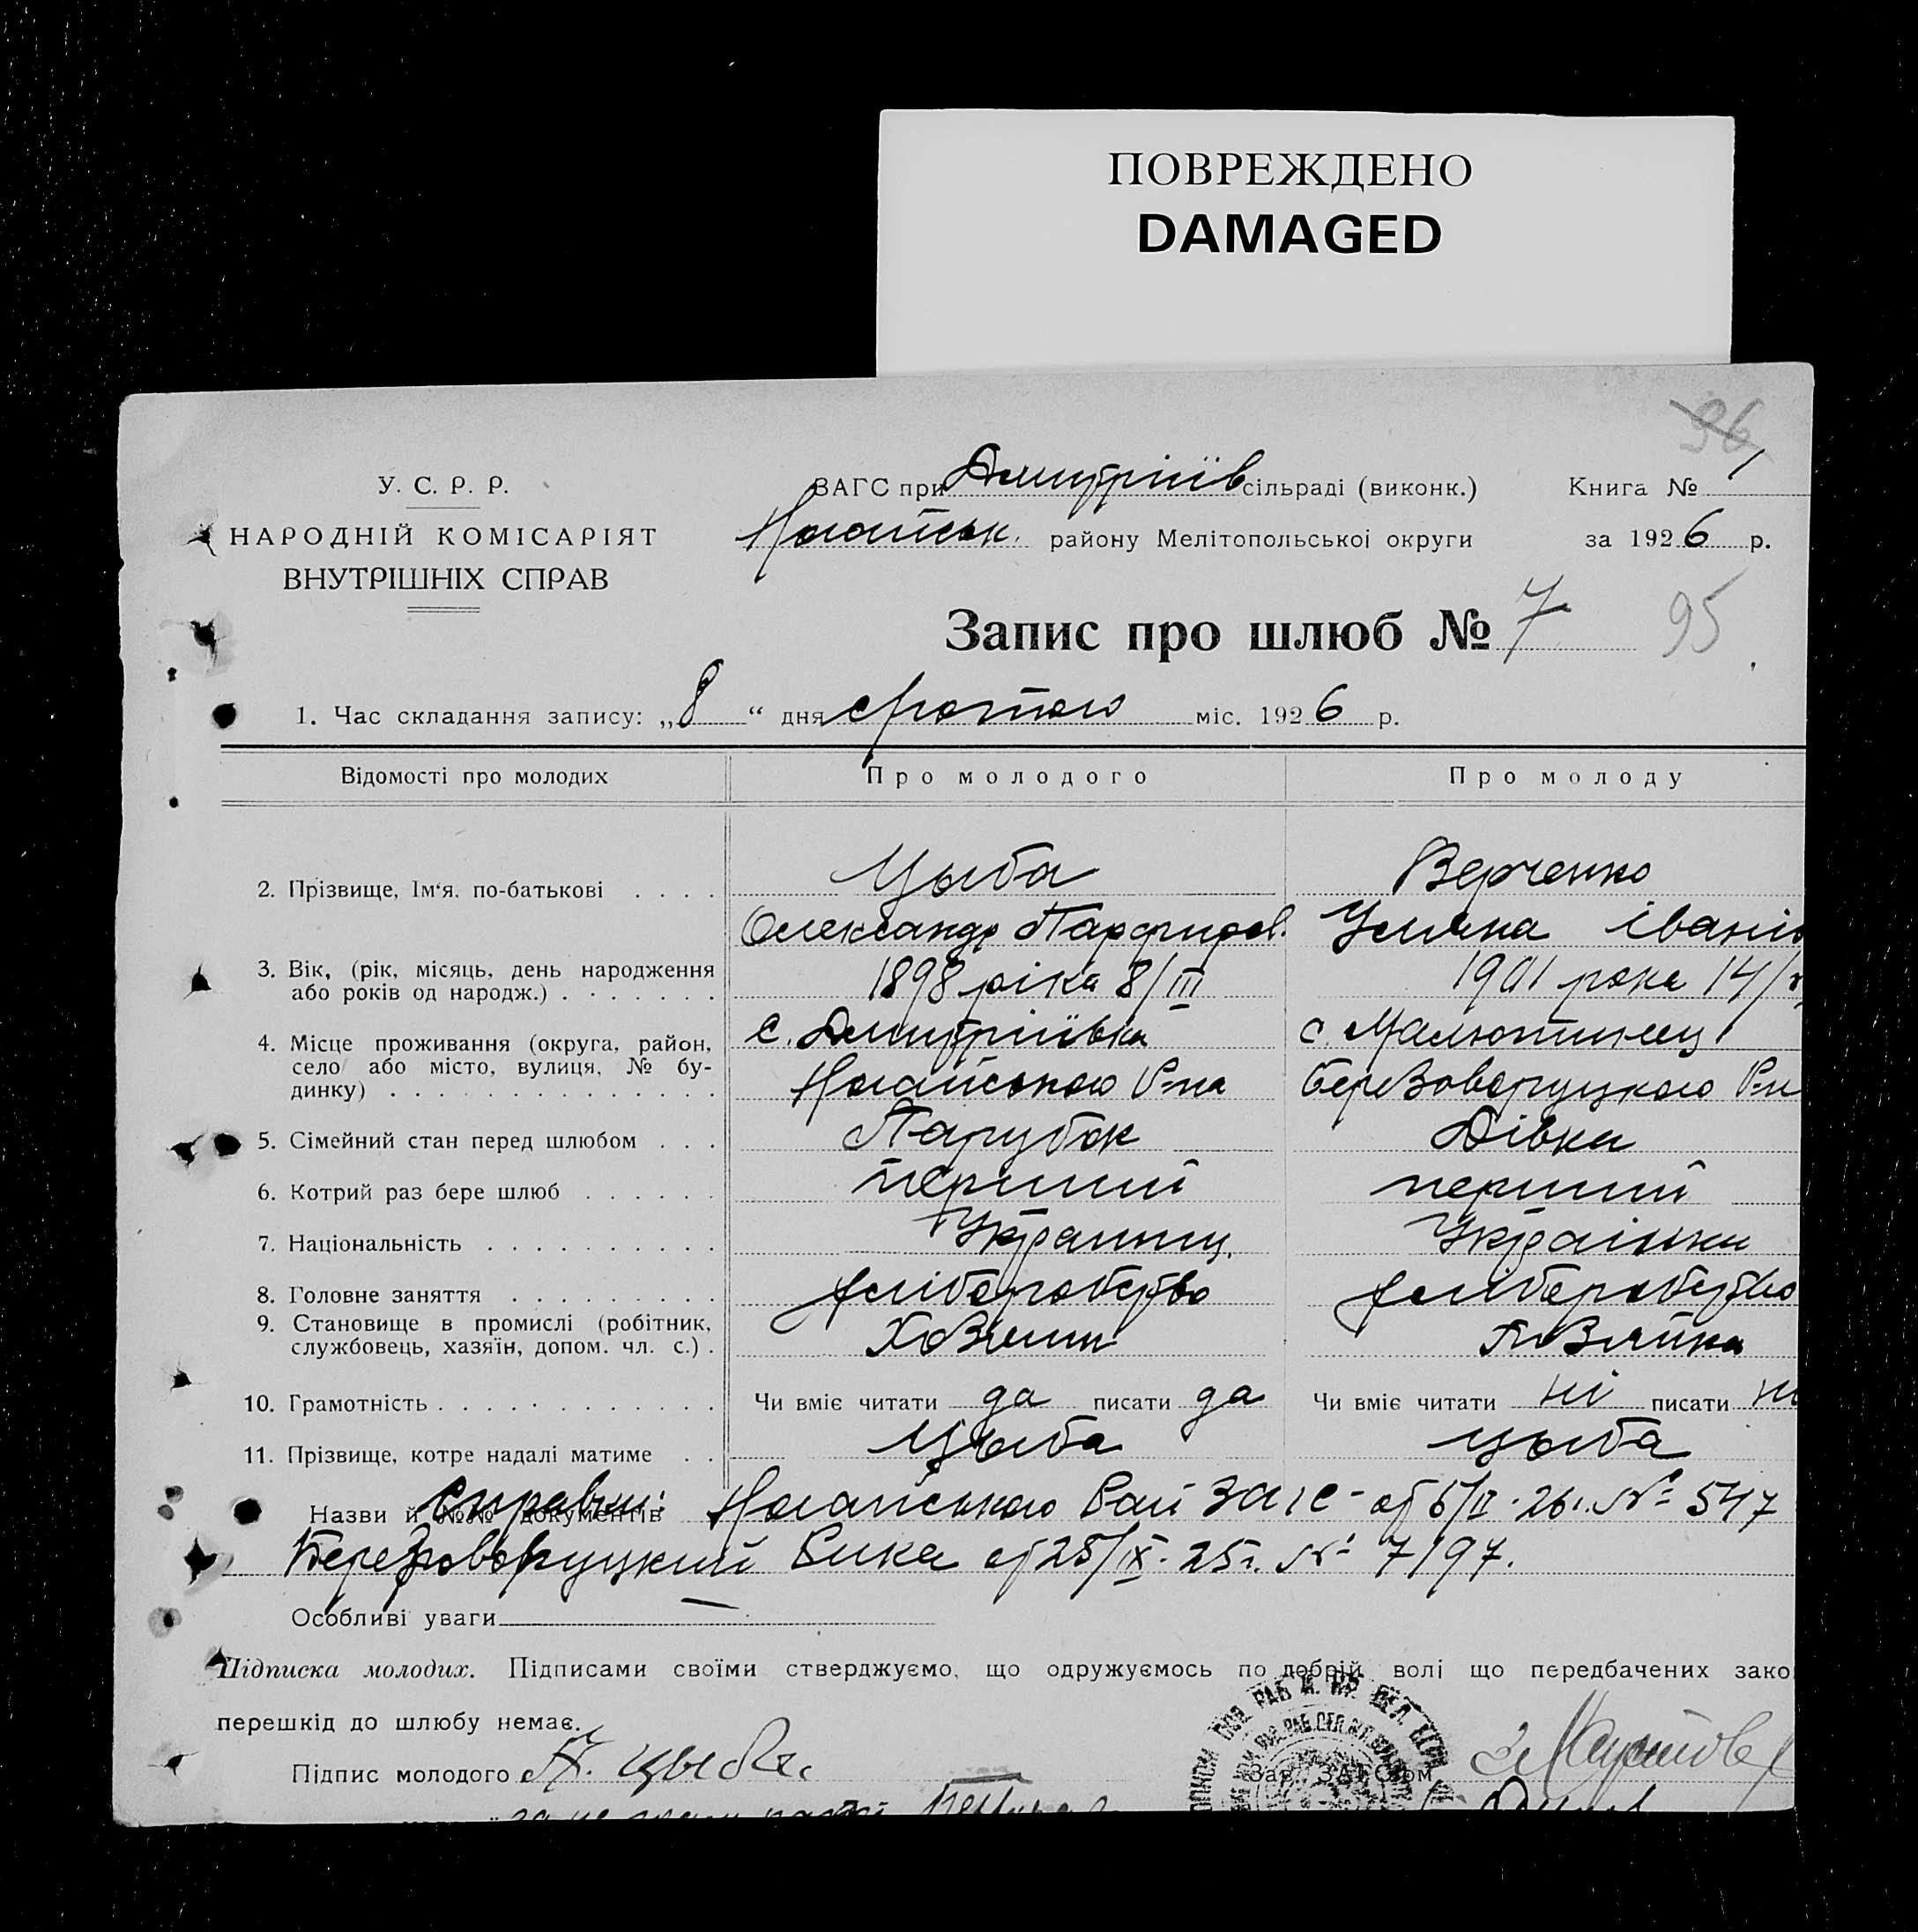 ПОВРЕЖДЕНО
DAMAGED
96
У. С. Р. Р.
НАРОДНІЙ КОМІСАРІЯТ
ВНУТРІШНІХ СПРАВ
ЗАГС при Дмитріїв сільраді (виконк.)
Ногайськ. району Мелітопольськоі округи
Книга № 1
за 1926 р.
Запис про шлюб № 7
95
1. Час складання запису: „8“ дня лютого міс. 1926 р.
Відомості про молодих Про молодого Про молоду
2. Прізвище, Ім‘я, по-батькові . . . . Цыба Верченко
Олександр Парфиров. Уляна Іванів
3. Вік, (рік, місяць, день народження
або років од народж.) . . . . . . . 1898 ріка 8/III 1901 рока 14/
4. Місце проживання (округа, район,
село або місто, вулиця, № бу-
динку) . . . . . . . . . . . . . .
с. Дмитріївка с. Малютинец
Ногайського Р-на Березоворуцкого Р-н
5. Сімейний стан перед шлюбом . . . Парубок Дівка
6. Котрий раз бере шлюб . . . . . . перший перший
7. Національність . . . . . . . . . . Украинец. Украінка
8. Головне заняття . . . . . . . . . хліборобство хліборобство
9. Становище в промислі (робітник,
службовець, хазяїн, допом. чл. с.) . Хозяин
10. Грамотність . . . . . . . . . . . . Чи вміє читати да писати да Чи вміє читати ні писати ні
11. Прізвище, котре надалі матиме . . Цыба Цыба
Назви й №№ документів Справки: Ногайського Рай ЗАГС - от 6/II - 26г. № 547
Березоворуцкий Вика от 25/IX - 25г. № 7197.
Особливі уваги —
Підписка молодих. Підписами своїми стверджуємо, що одружуємось по добрій волі що передбачених зако
перешкід до шлюбу немає.
Підпис молодого А. Цыба
Зав. ЗАГС'ом